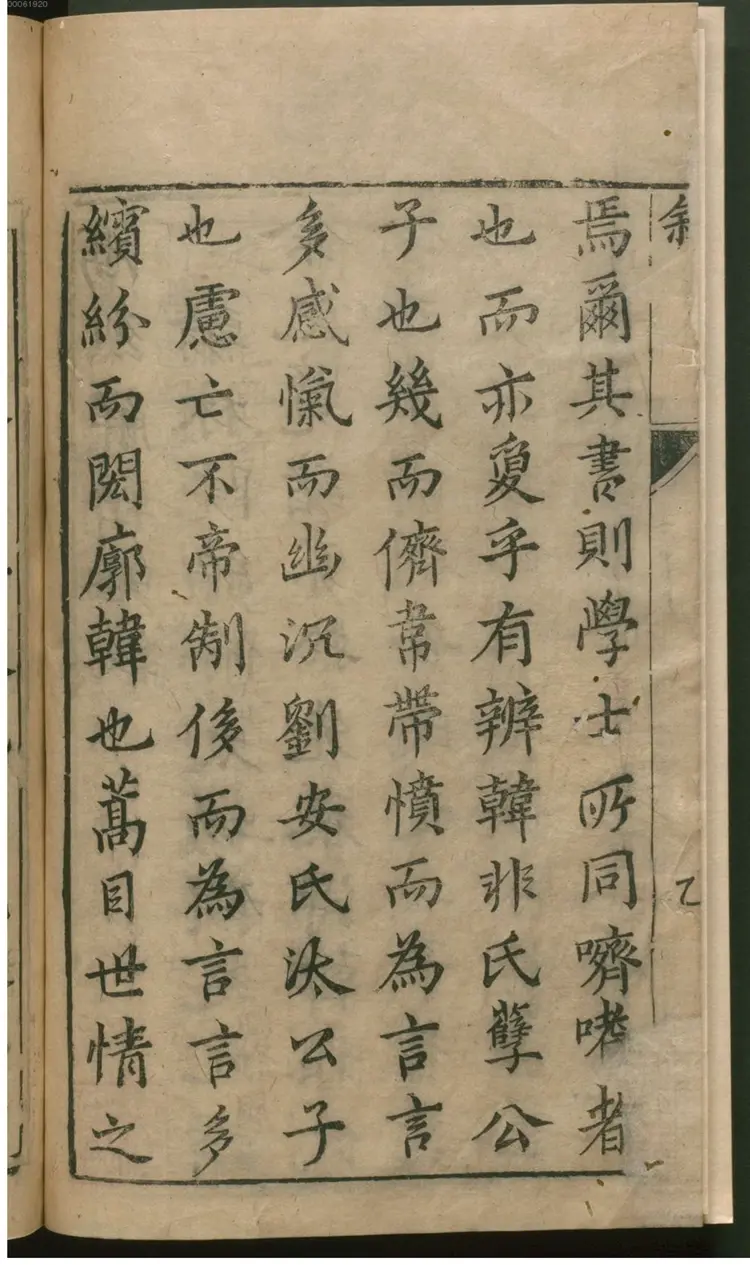 00061920
叙
乙
焉爾其書則學士所同嚌哮者
也而亦夐乎有辨韓非氏孽公
子也幾而儕韋帶憤而為言言
多感愾而幽沉劉安氏汰公子
也慮亡不帝制侈而為言言多
繽紛而閎廓韓也蒿目世情之